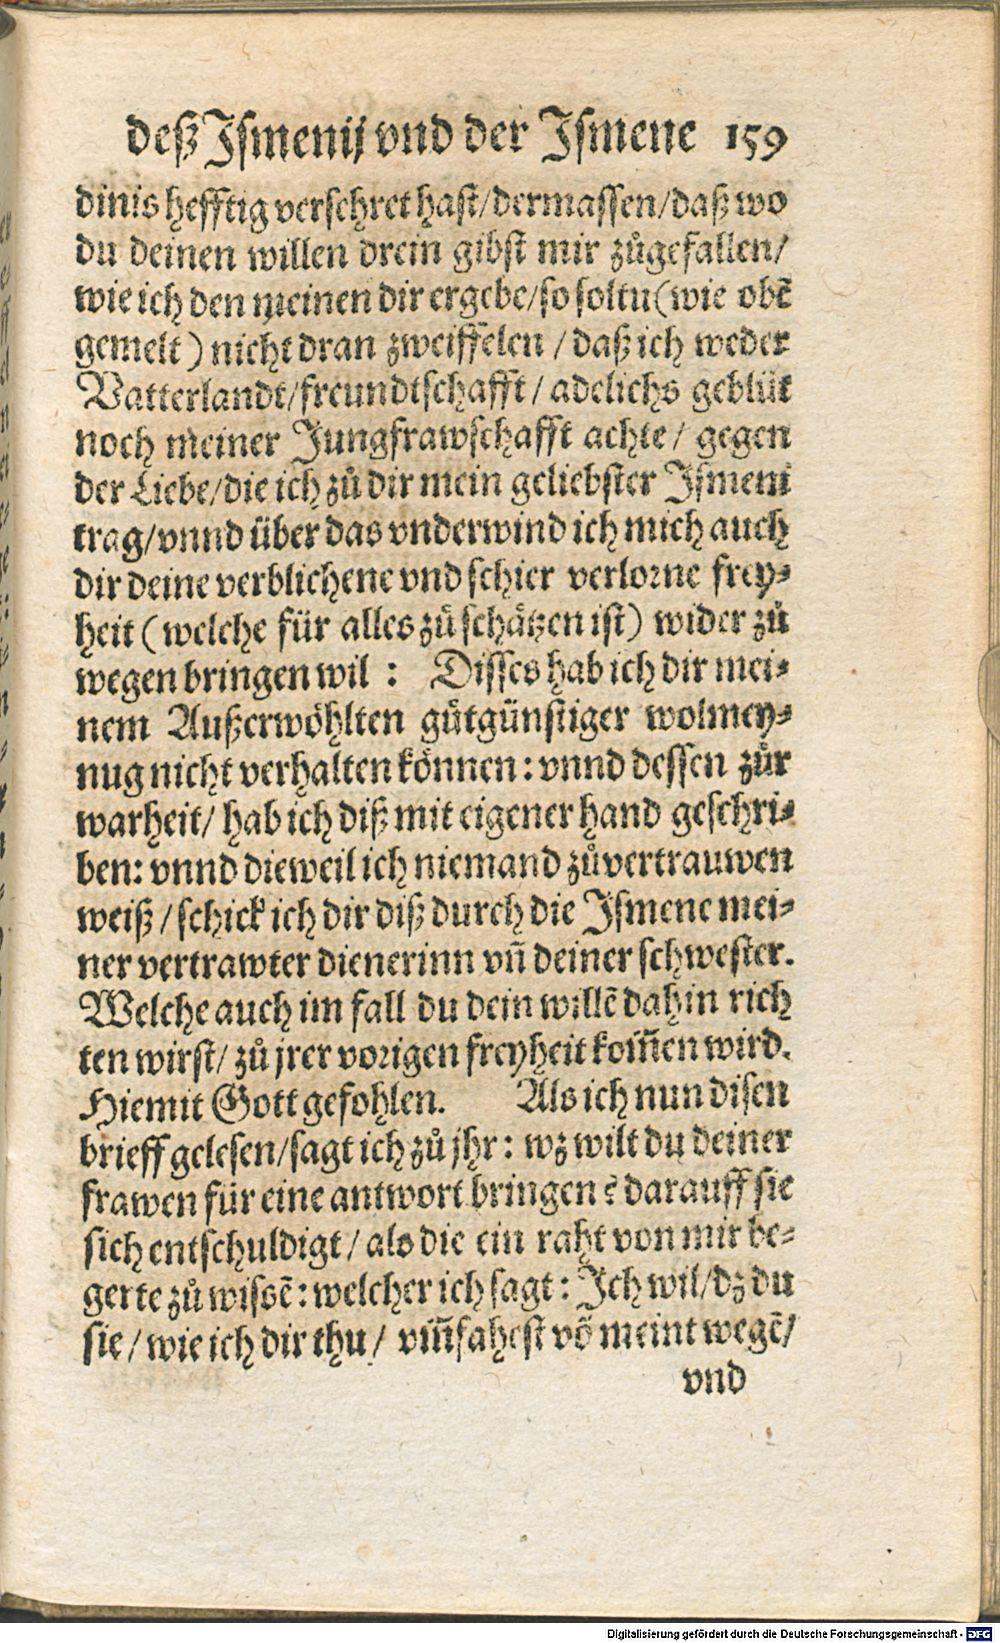 deß Jſmenij vnd der Jſmene 159
dinis hefftig verſehret haſt/dermaſſen/daß wo
du deinen willen drein gibſt mir zůgefallen/
wie ich den meinen dir ergebe/ſo ſoltu(wie obẽ
gemelt) nicht dran zweiffelen / daß ich weder
Vatterlandt/freundtſchafft/ adelichs geblüt
noch meiner Jungfrawſchafft achte/ gegen
der Liebe/die ich zů dir mein geliebſter Jſmeni
trag/vnnd über das vnderwind ich mich auch
dir deine verblichene vnd ſchier verlorne frey⸗
heit (welche für alles zů ſchätzen iſt) wider zů
wegen bringen wil : Diſſes hab ich dir mei⸗
nem Außerwöhlten gůtgünſtiger wolmey⸗
nug nicht verhalten können: vnnd deſſen zůr
warheit/ hab ich diß mit eigener hand geſchri⸗
ben: vnnd dieweil ich niemand zůvertrauwen
weiß/ſchick ich dir diß durch die Jſmene mei⸗
ner vertrawter dienerinn vñ deiner ſchweſter.
Welche auch im fall du dein willẽ dahin rich
ten wirſt/ zů jrer vorigen freyheit kom̃en wird.
Hiemit Gott gefohlen. Als ich nun diſen
brieff geleſen/ſagt ich zů jhr: wz wilt du deiner
frawen für eine antwort bringen? darauff ſie
ſich entſchuldigt/als die ein raht von mir be⸗
gerte zů wiſsẽ: welcher ich ſagt: Jch wil/dz du
ſie/wie ich dir thu/ vm̃faheſt võ meint wegẽ/
vnd
Digitalisierung gefördert durch die Deutsche Forschungsgemeinschaft - DFG